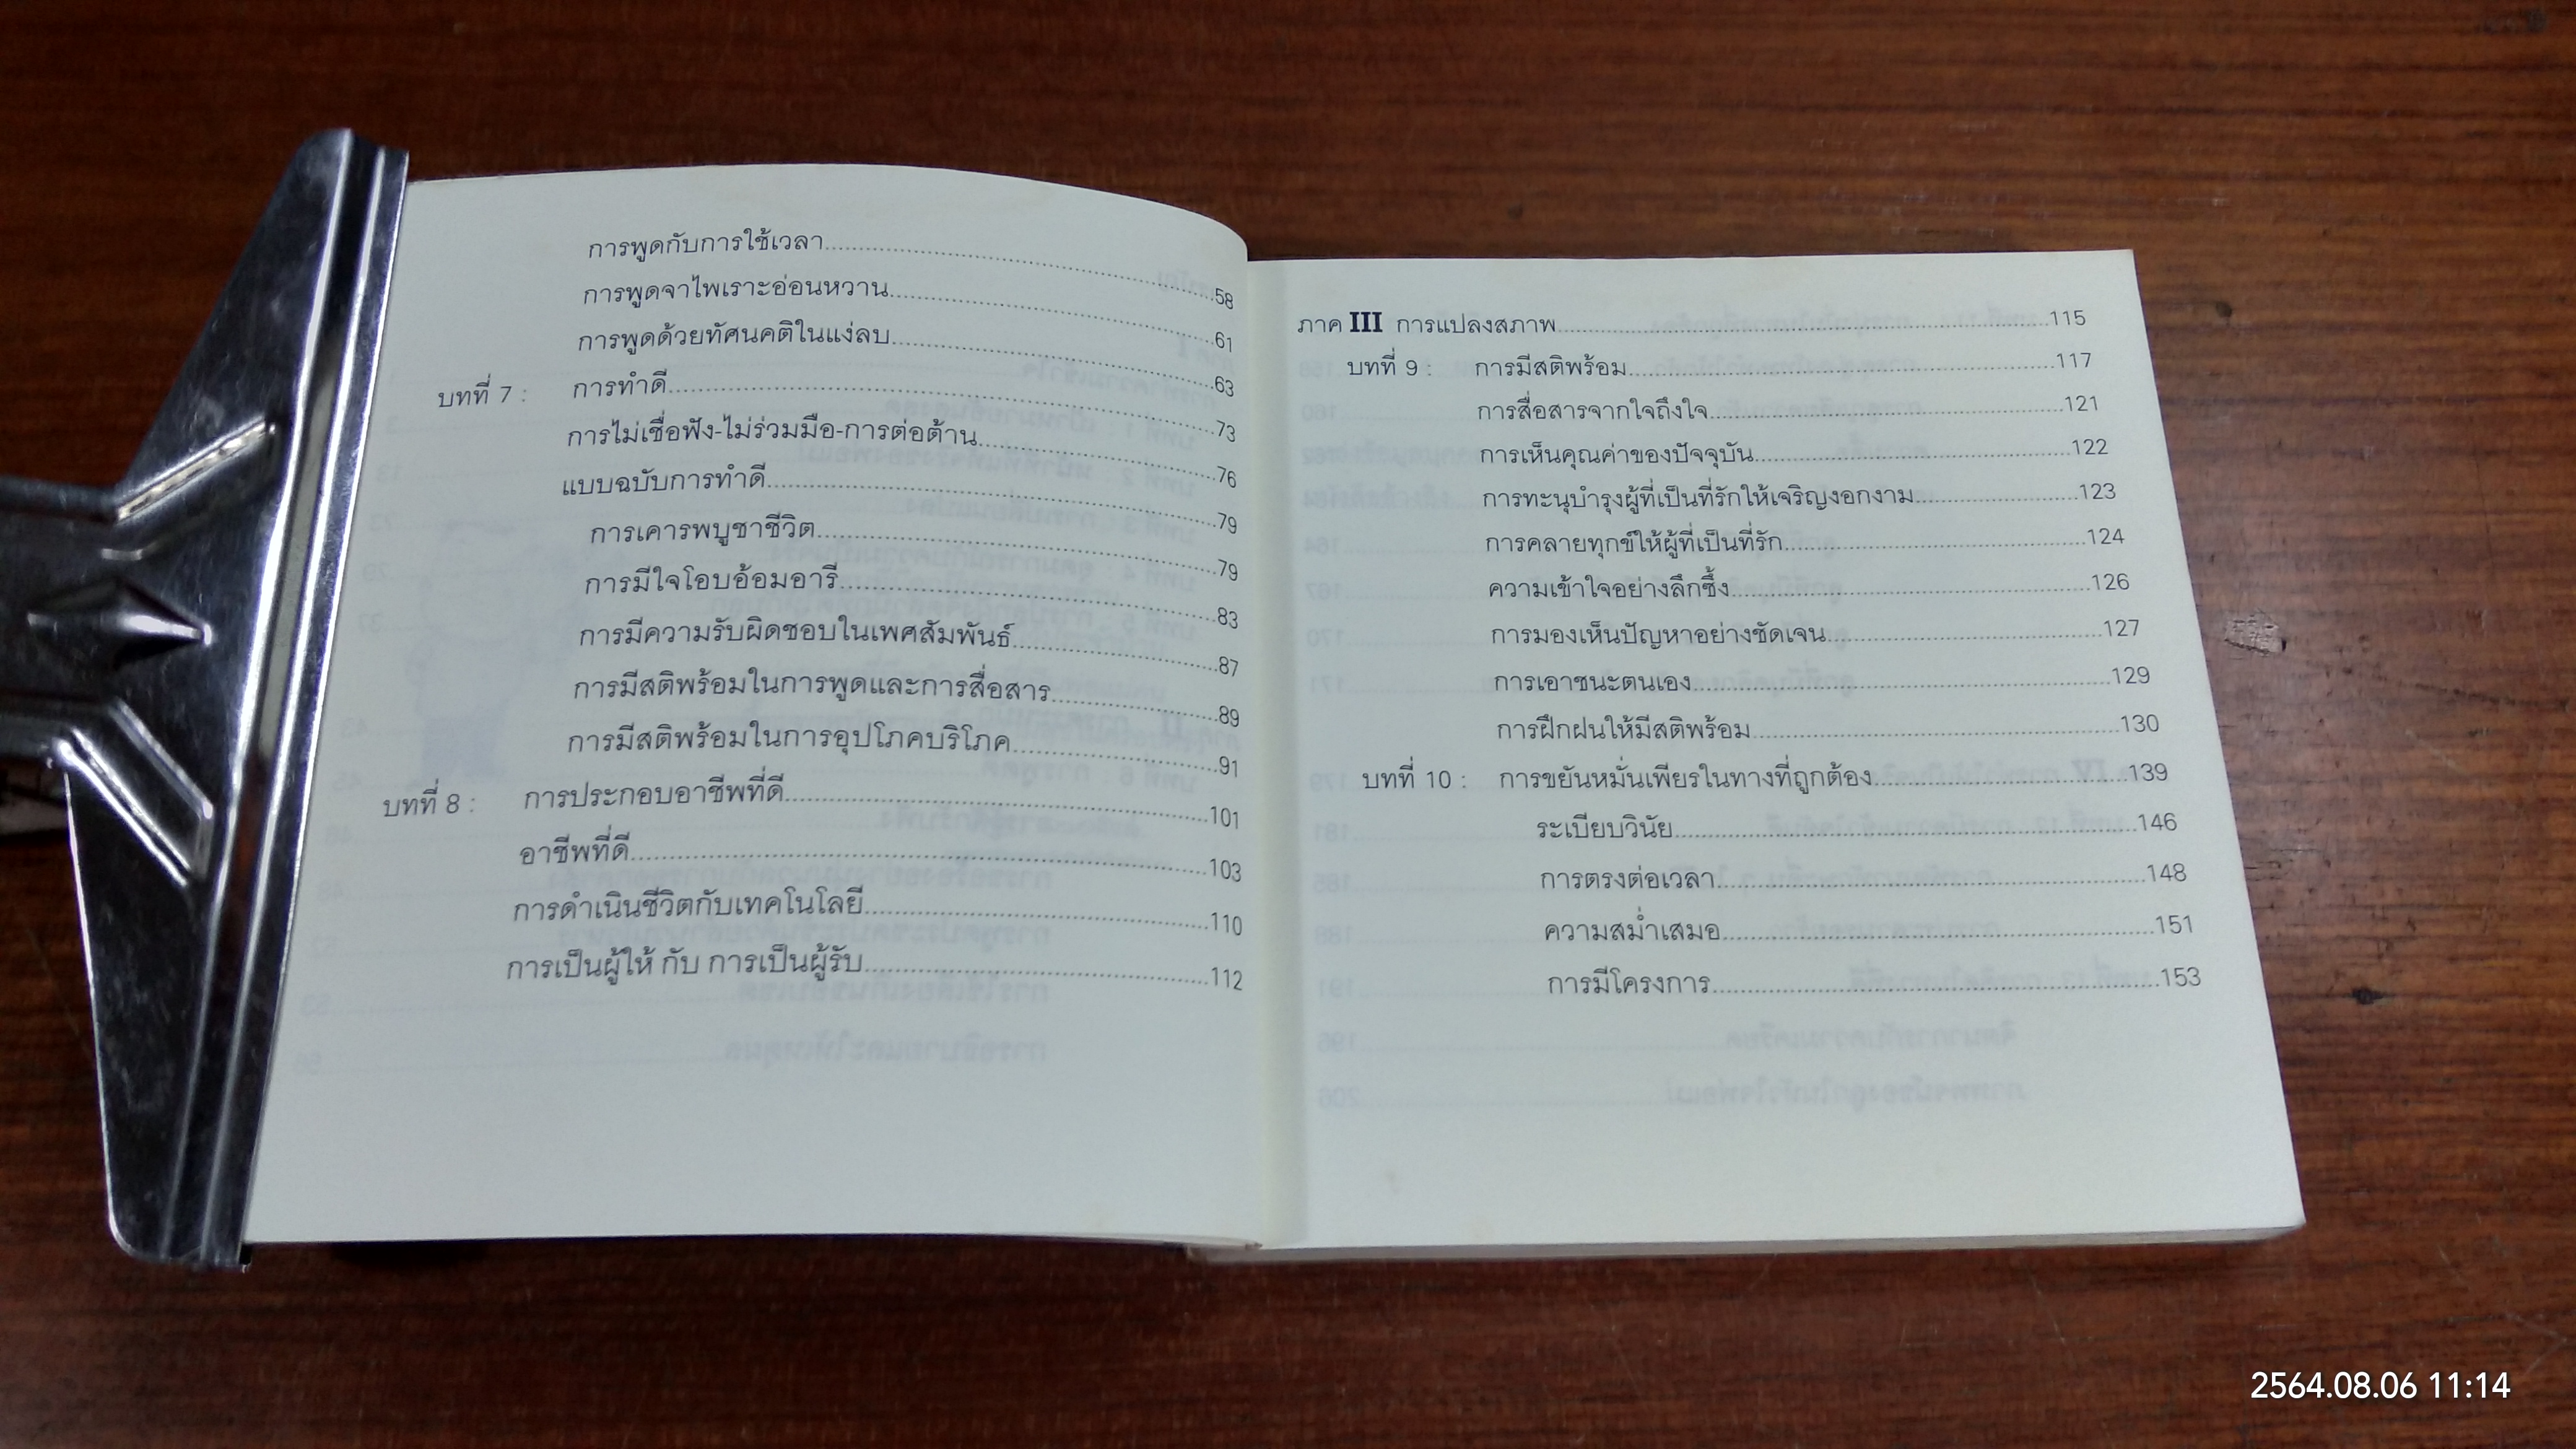 การพูดกับการใช้เวลา....................58
การพูดจาไพเราะอ่อนหวาน....................61
การพูดด้วยทัศนคติในแง่ลบ....................63
บทที่ 7 : การทำดี....................73
การไม่เชื่อฟัง-ไม่ร่วมมือ-การต่อต้าน....................76
แบบฉบับการทำดี....................79
การเคารพบูชาชีวิต....................79
การมีใจโอบอ้อมอารี....................83
การมีความรับผิดชอบในเพศสัมพันธ์....................87
การมีสติพร้อมในการพูดและการสื่อสาร....................89
การมีสติพร้อมในการอุปโภคบริโภค....................91
บทที่ 8 : การประกอบอาชีพที่ดี....................101
อาชีพที่ดี....................103
การดำเนินชีวิตกับเทคโนโลยี....................110
การเป็นผู้ให้ กับ การเป็นผู้รับ....................112
ภาค III การแปลงสภาพ....................115
บทที่ 9 : การมีสติพร้อม....................117
การสื่อสารจากใจถึงใจ....................121
การเห็นคุณค่าของปัจจุบัน....................122
การทะนุบำรุงผู้ที่เป็นที่รักให้เจริญงอกงาม....................123
การคลายทุกข์ให้ผู้ที่เป็นที่รัก....................124
ความเข้าใจอย่างลึกซึ้ง....................126
การมองเห็นปัญหาอย่างชัดเจน....................127
การเอาชนะตนเอง....................129
การฝึกฝนให้มีสติพร้อม....................130
บทที่ 10 : การขยันหมั่นเพียรในทางที่ถูกต้อง....................139
ระเบียบวินัย....................146
การตรงต่อเวลา....................148
ความสม่ำเสมอ....................151
การมีโครงการ....................153
2564.08.06 11:14